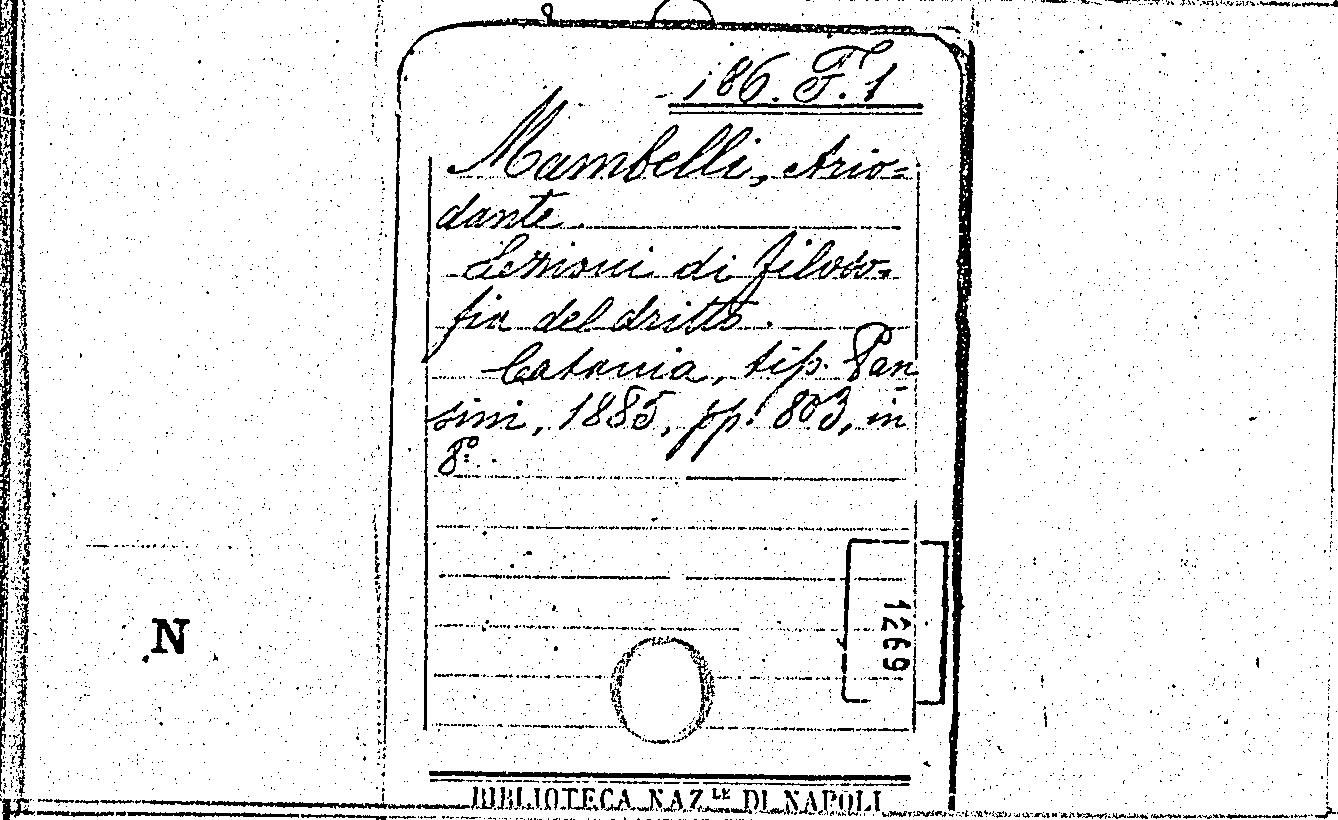 186. F. 1
Mambelli, Ario=
dante.
Lezioni di filoso=
fia del dritto.
Catania, tip. Pan
sini, 1885, pp. 803, in
8º.
N
1269
BIBLIOTECA NAZ.LE DI NAPOLI